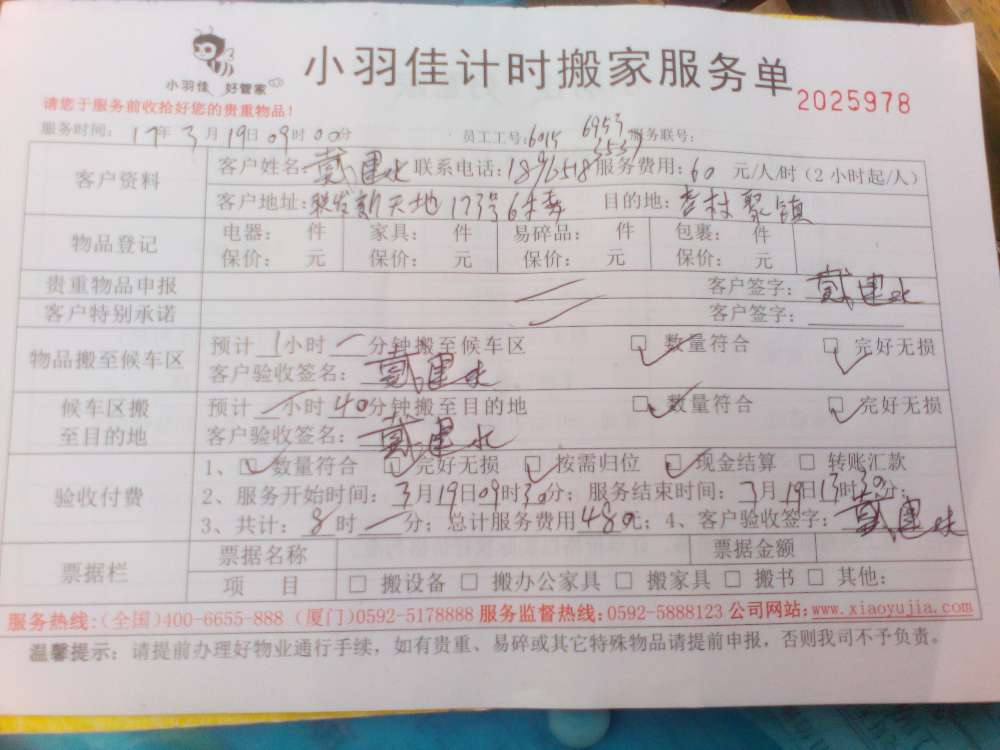 小羽佳 好管家
小羽佳计时搬家服务单
2025978
请您于服务前收拾好您的贵重物品！
服务时间： 17年 3月 19日 09时 00分 员工工号：6015 6953 3537 服务联号：
客户资料 客户姓名： 戴建 联系电话：1896518 服务费用：60 元/人/时（2小时起/人）
客户地址：联发新天地 173号6 目的地：杏林聚镇
物品登记 电器： 件 家具： 件 易碎品： 件 包裹： 件
保价： 元 保价： 元 保价： 元 保价： 元
贵重物品申报 客户签字： 戴建
客户特别承诺 客户签字：
物品搬至候车区 预计 1小时 一分钟搬至候车区 ☑ 数量符合 ☑ 完好无损
客户验收签名： 戴建
候车区搬至目的地 预计 一小时 40分钟搬至目的地 ☑ 数量符合 ☑ 完好无损
客户验收签名： 戴建
验收付费 1、☑ 数量符合 ☑ 完好无损 ☑ 按需归位 ☑ 现金结算 □ 转账汇款
2、服务开始时间：3月19日09时30分；服务结束时间：3月19日13时30分；
3、共计：8时一分；总计服务费用480元；4、客户验收签字： 戴建
票据栏 票据名称 票据金额
项 目 □ 搬设备 □ 搬办公家具 □ 搬家具 □ 搬书 □ 其他：
服务热线：(全国)400-6655-888 (厦门)0592-5178888 服务监督热线：0592-5888123 公司网站：www.xiaoyujia.com
温馨提示：请提前办理好物业通行手续，如有贵重、易碎或其它特殊物品请提前申报，否则我司不予负责。